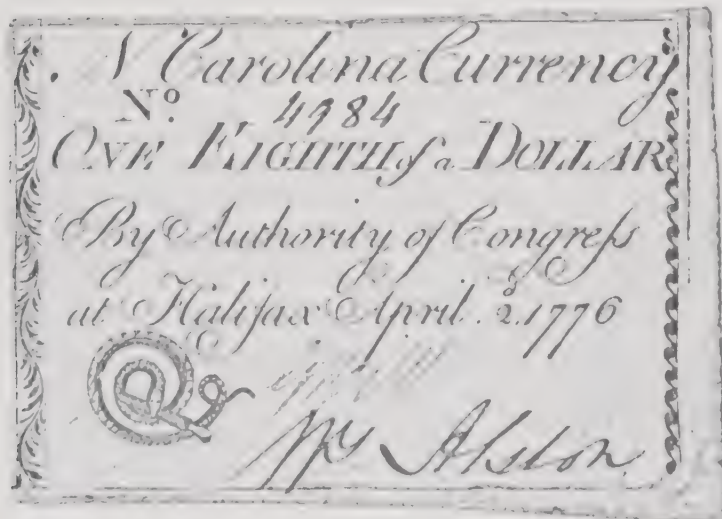 N Carolina Currency
No. 4984
ONE EIGHTH of a DOLLAR
By Authority of Congreſs
at Halifax April 2d. 1776
Wm Alston